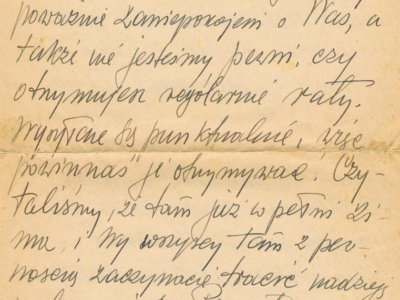 poważnie zaniepokojeni o Was, a
także nie jesteśmy pewni, czy
otrzymujesz regularnie raty.
Wysyłane są punktualnie, więc
powinnaś je otrzymywać. Czy-
taliśmy, że tam już w pełni zi-
ma, i Wy wszyscy tam z pew-
nością zaczynacie tracić nadzieję